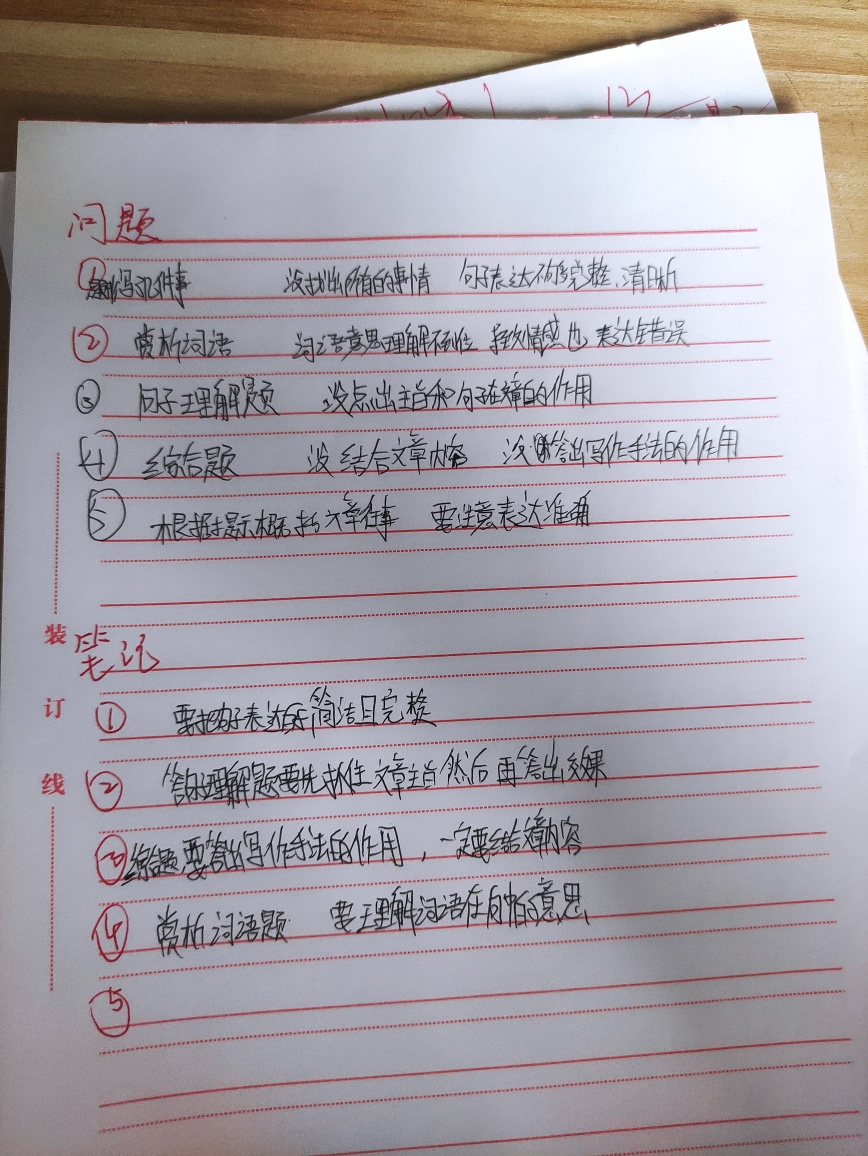 问题
① 写几件事 没找出所有的事情 句子表达不够完整、清晰
② 赏析词语 词语意思理解不到位 导致情感也表达错误
③ 句子理解题 没点出主旨和句子在文章的作用
④ 综合题 没结合文章内容 没答出写作手法的作用
⑤ 根据提示概括文章往事 要注意表达准确
装订线
笔记
① 要把句子表达的简洁且完整
② 答句理解题要先抓住文章主旨然后再答出效果
③ 综合题要答出写作手法的作用，一定要结合文章内容
④ 赏析词语题 要理解词语在句中的意思
⑤